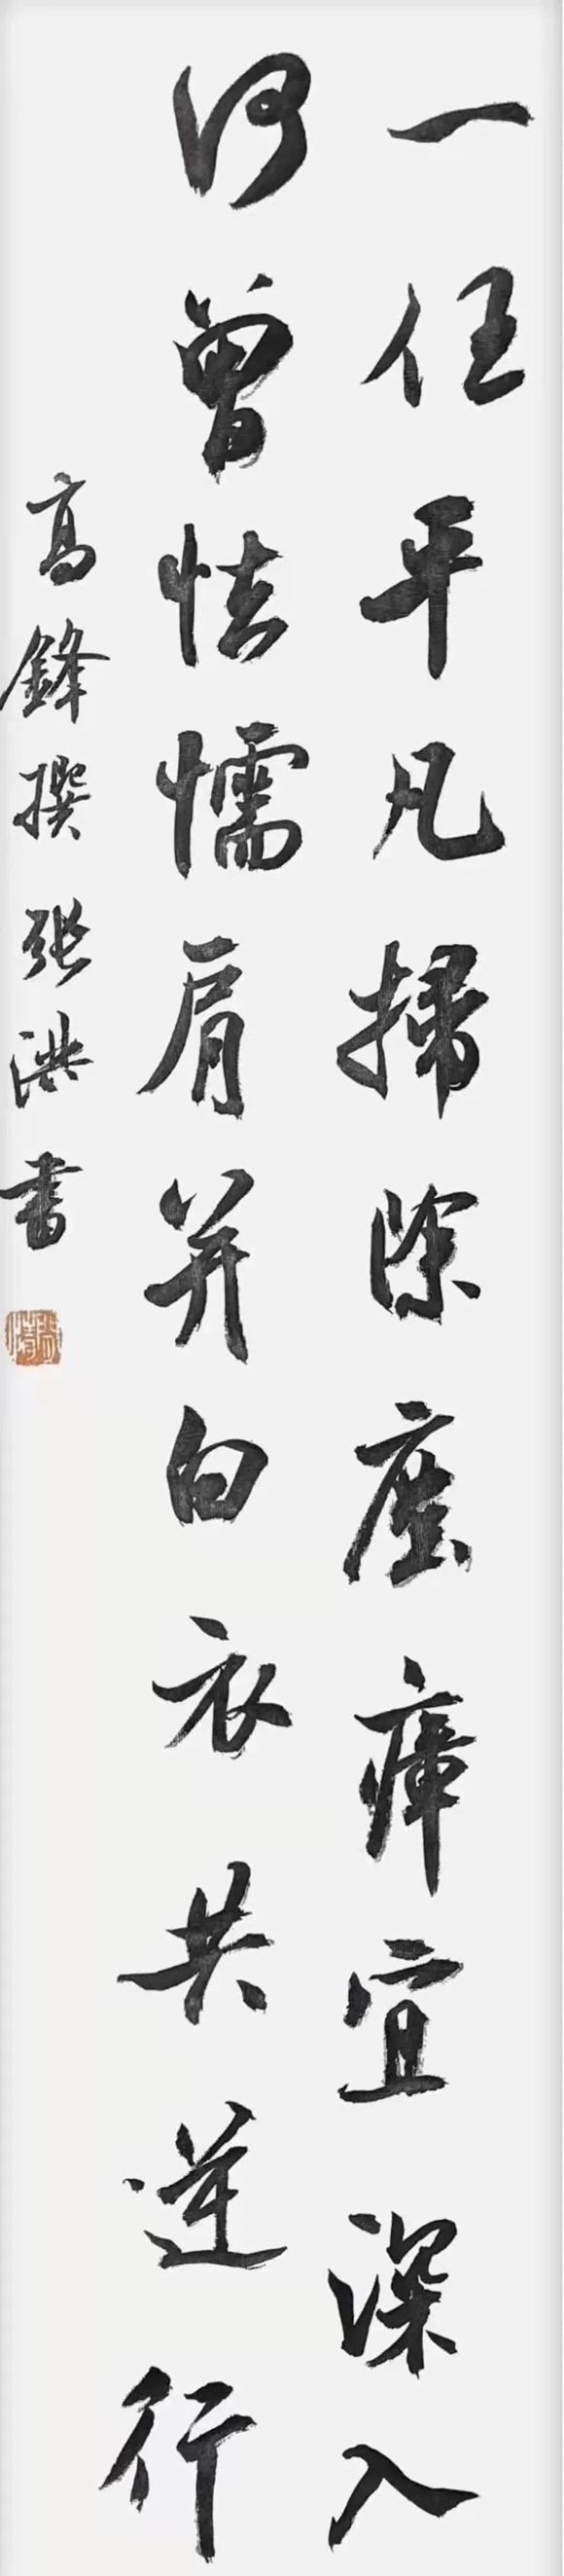 一任平凡掃除塵瘴宜深入
何曾怯懦肩並白衣共逆行
高鋒撰張洪書